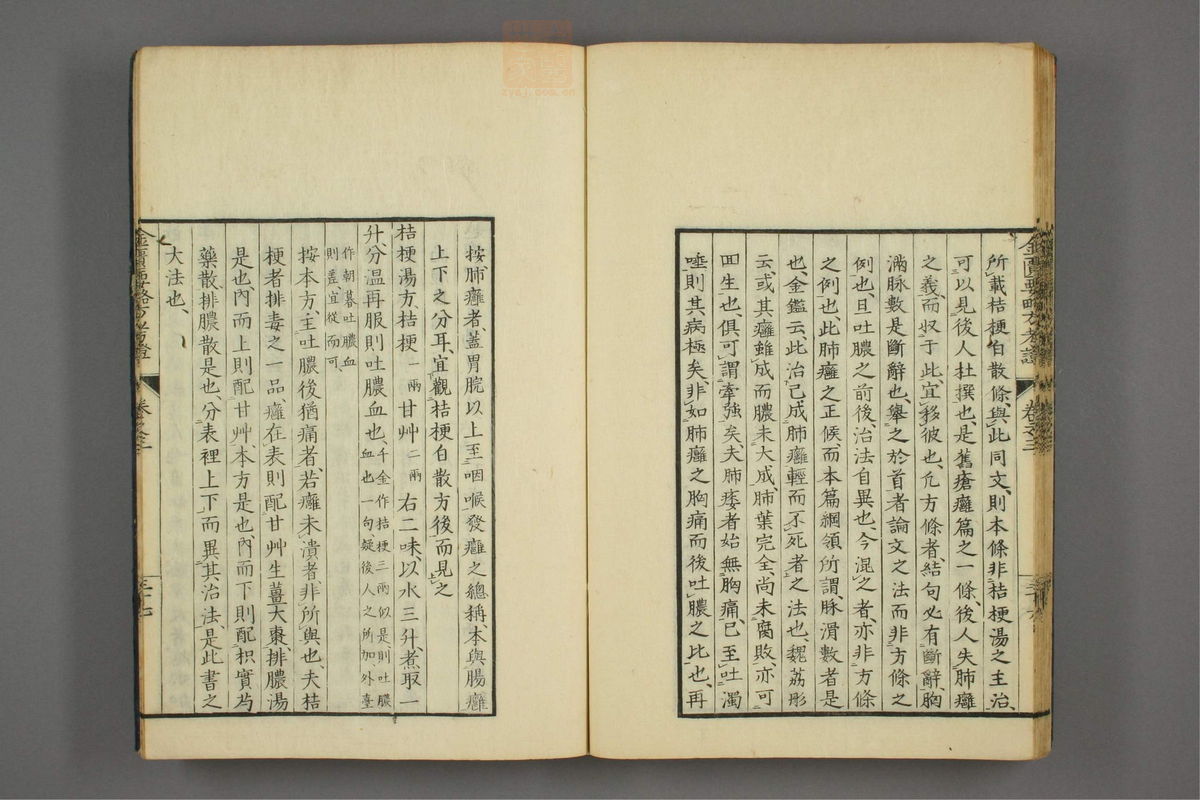 所載桔梗白散條與此同文則本條非桔梗湯之主治
可以見後人杜撰也是舊瘡癰篇之一條後人失肺癰
之義而収于此宜移彼也凢方條者結句必有斷辭胸
滿脉數是斷辭也舉之於首者論文之法而非方條之
例也且吐膿之前後治法自異也今混之者亦非方條
之例也此肺癰之正候而本篇綱領所謂脉滑數者是
也金鑑云此治已成肺癰輕而不死者之法也魏荔彤
云或其癰雖成而膿未大成肺葉完全尚未腐敗亦可
囬生也俱可謂牽強矣夫肺痿者始無胸痛已至吐濁
唾則其病極矣非如肺癰之胸痛而後吐膿之比也再
按肺癰者蓋胃脘以上至咽喉發癰之總稱本與腸癰
上下之分耳宜觀桔梗白散方後而見之
桔梗湯方桔梗一兩甘艸二兩右二味以水三升煮取一
升分温再服則吐膿血也千金作桔梗三兩似是則吐膿血也一句疑後人之所加外臺
作朝暮吐膿血則蓋宜從而可
按本方主吐膿後猶痛者若癰未潰者非所與也夫桔
梗者排毒之一品癰在表則配甘艸生薑大棗排膿湯
是也內而上則配甘艸本方是也內而下則配枳實芍
藥散排膿散是也分表裡上下而異其治法是此書之
大法也
金匱要略方考證
卷之三